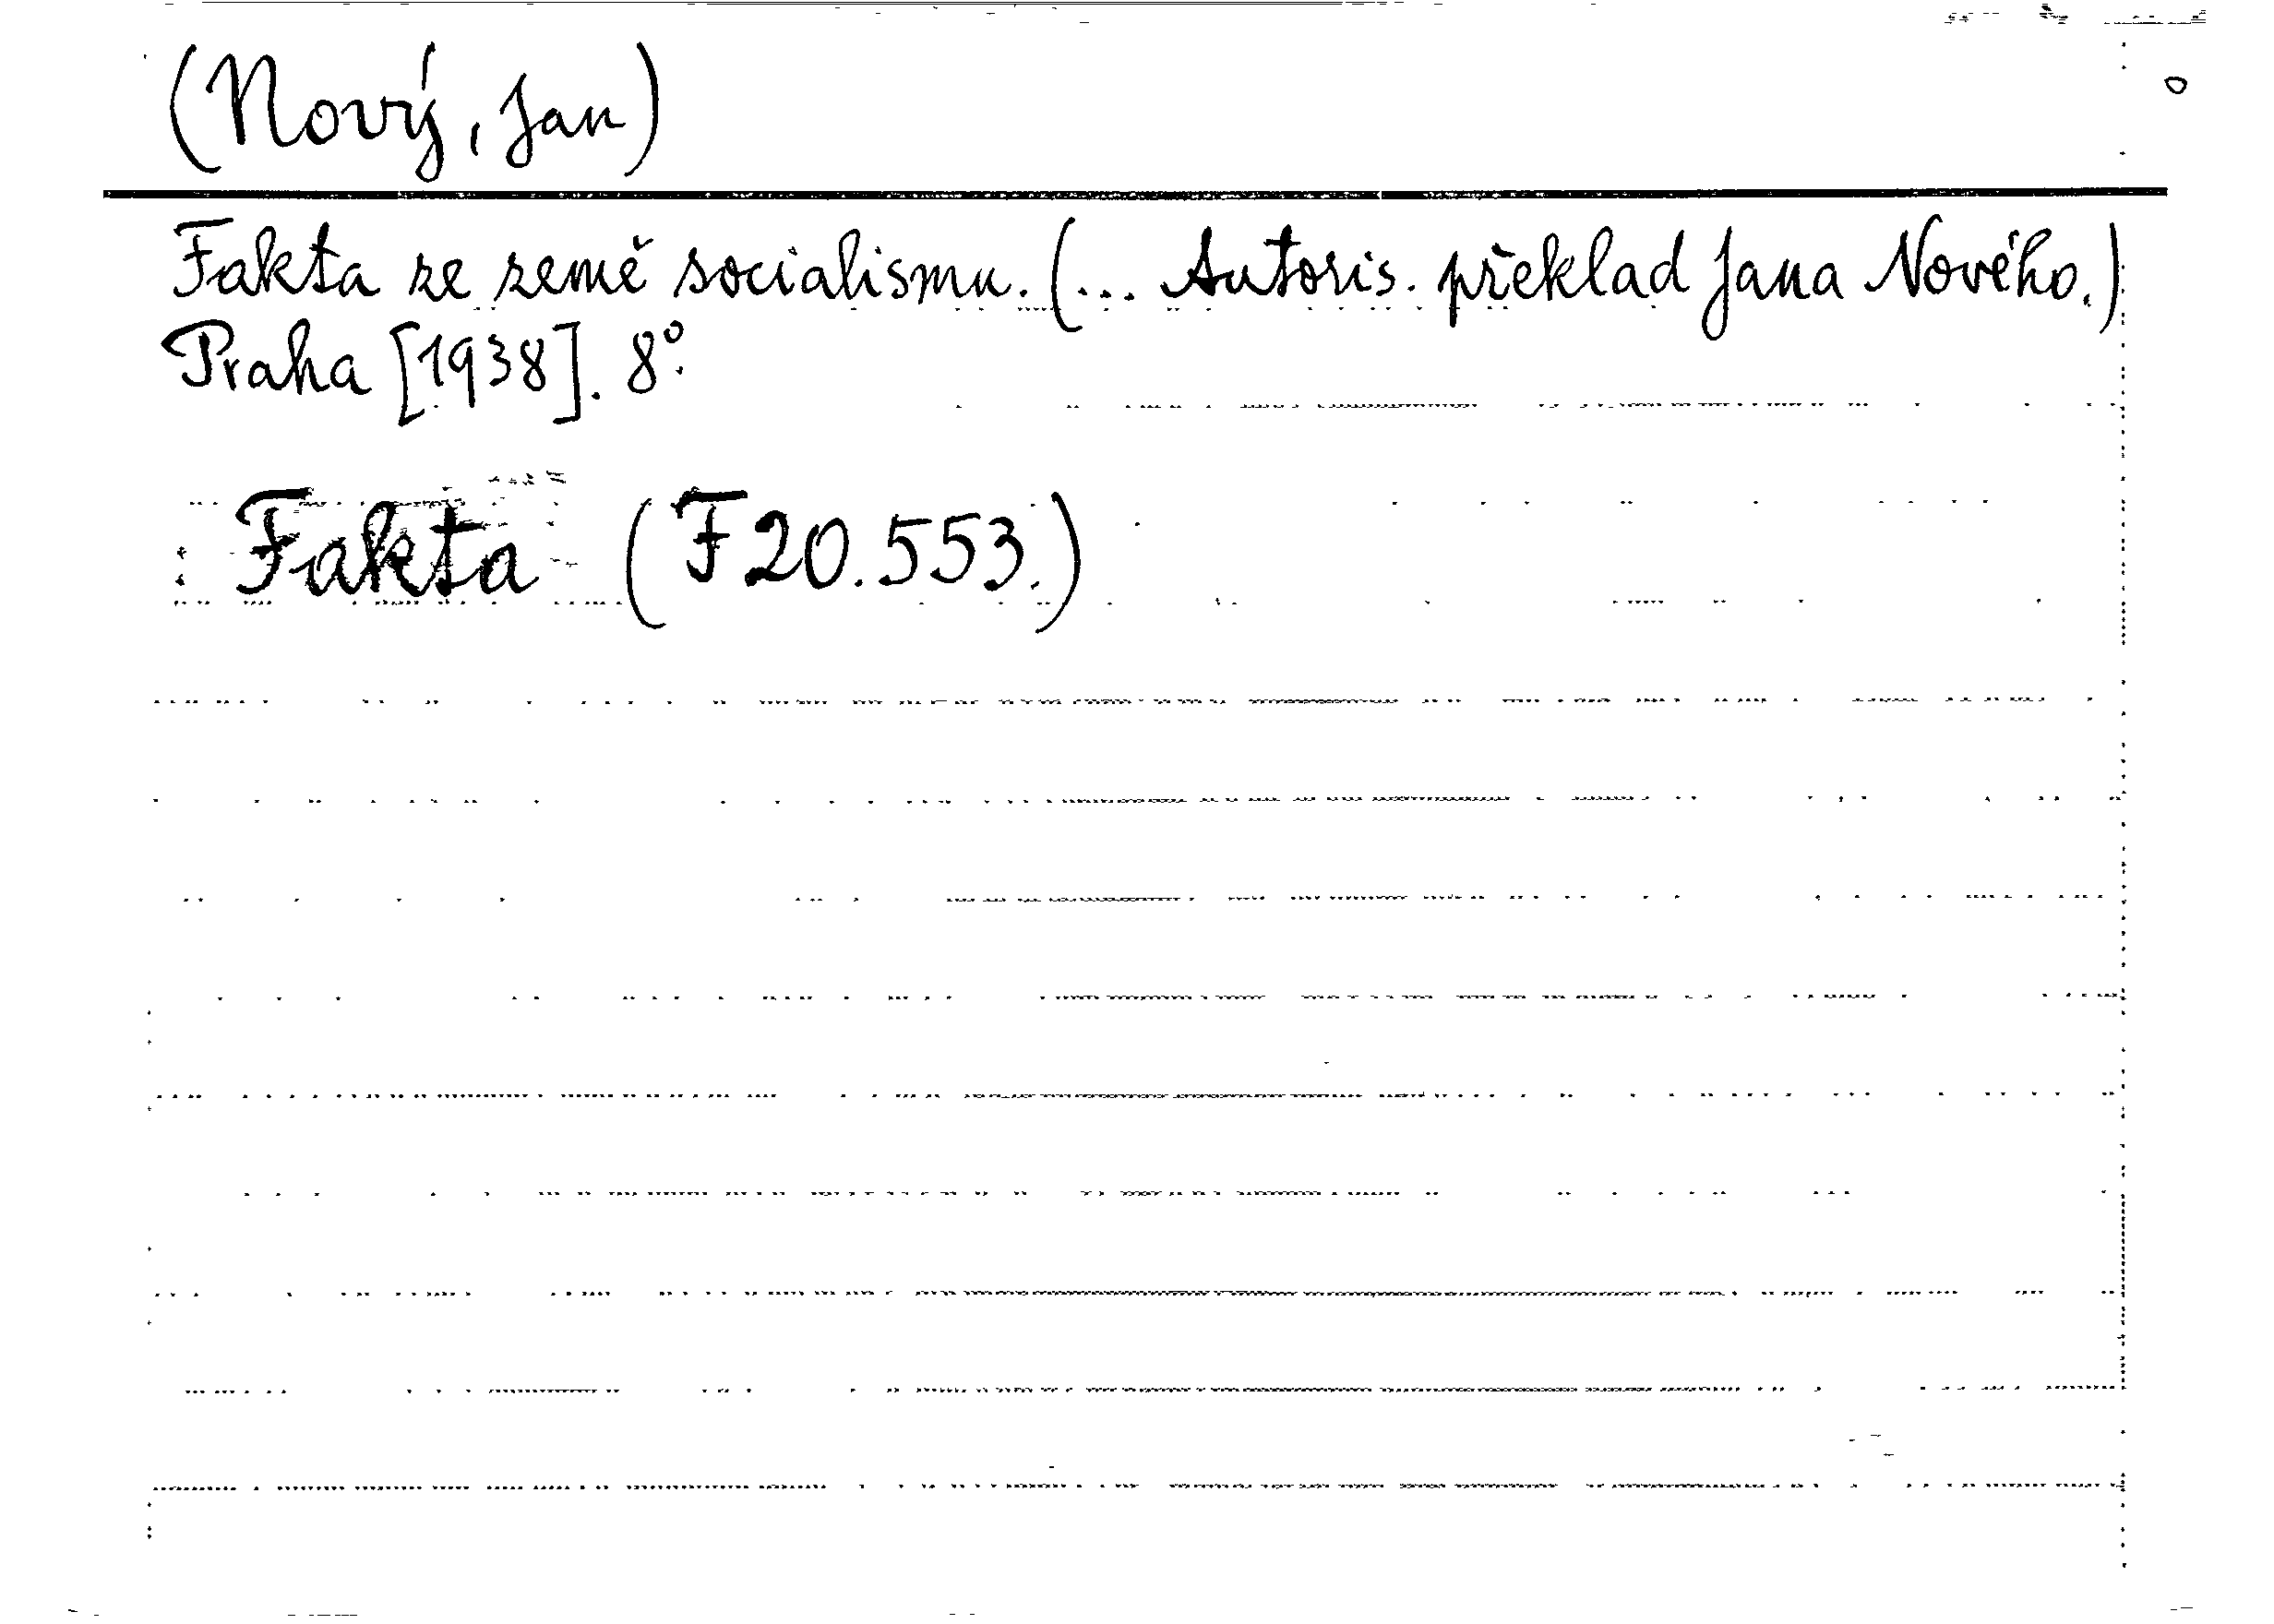 (Nový, Jan)
Fakta ze země socialismu. (... Autoris. překlad Jana Nového.)
Praha [1938]. 8°.
Fakta (F 20.553.)